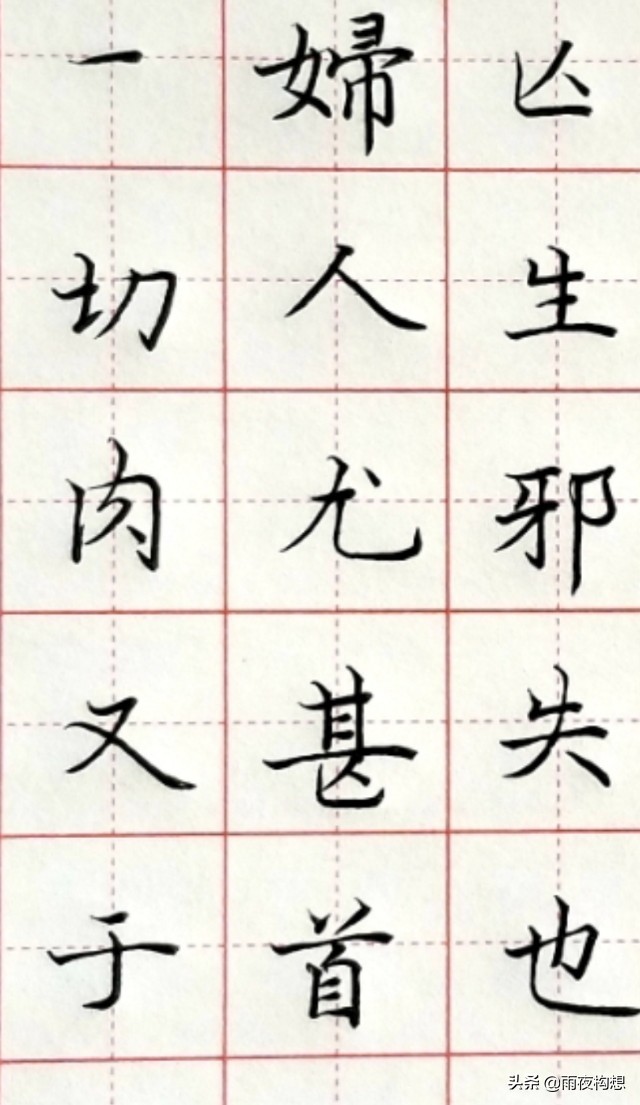 亾生邪失也
婦人尤甚首
一切肉又于
头条 @雨夜构想